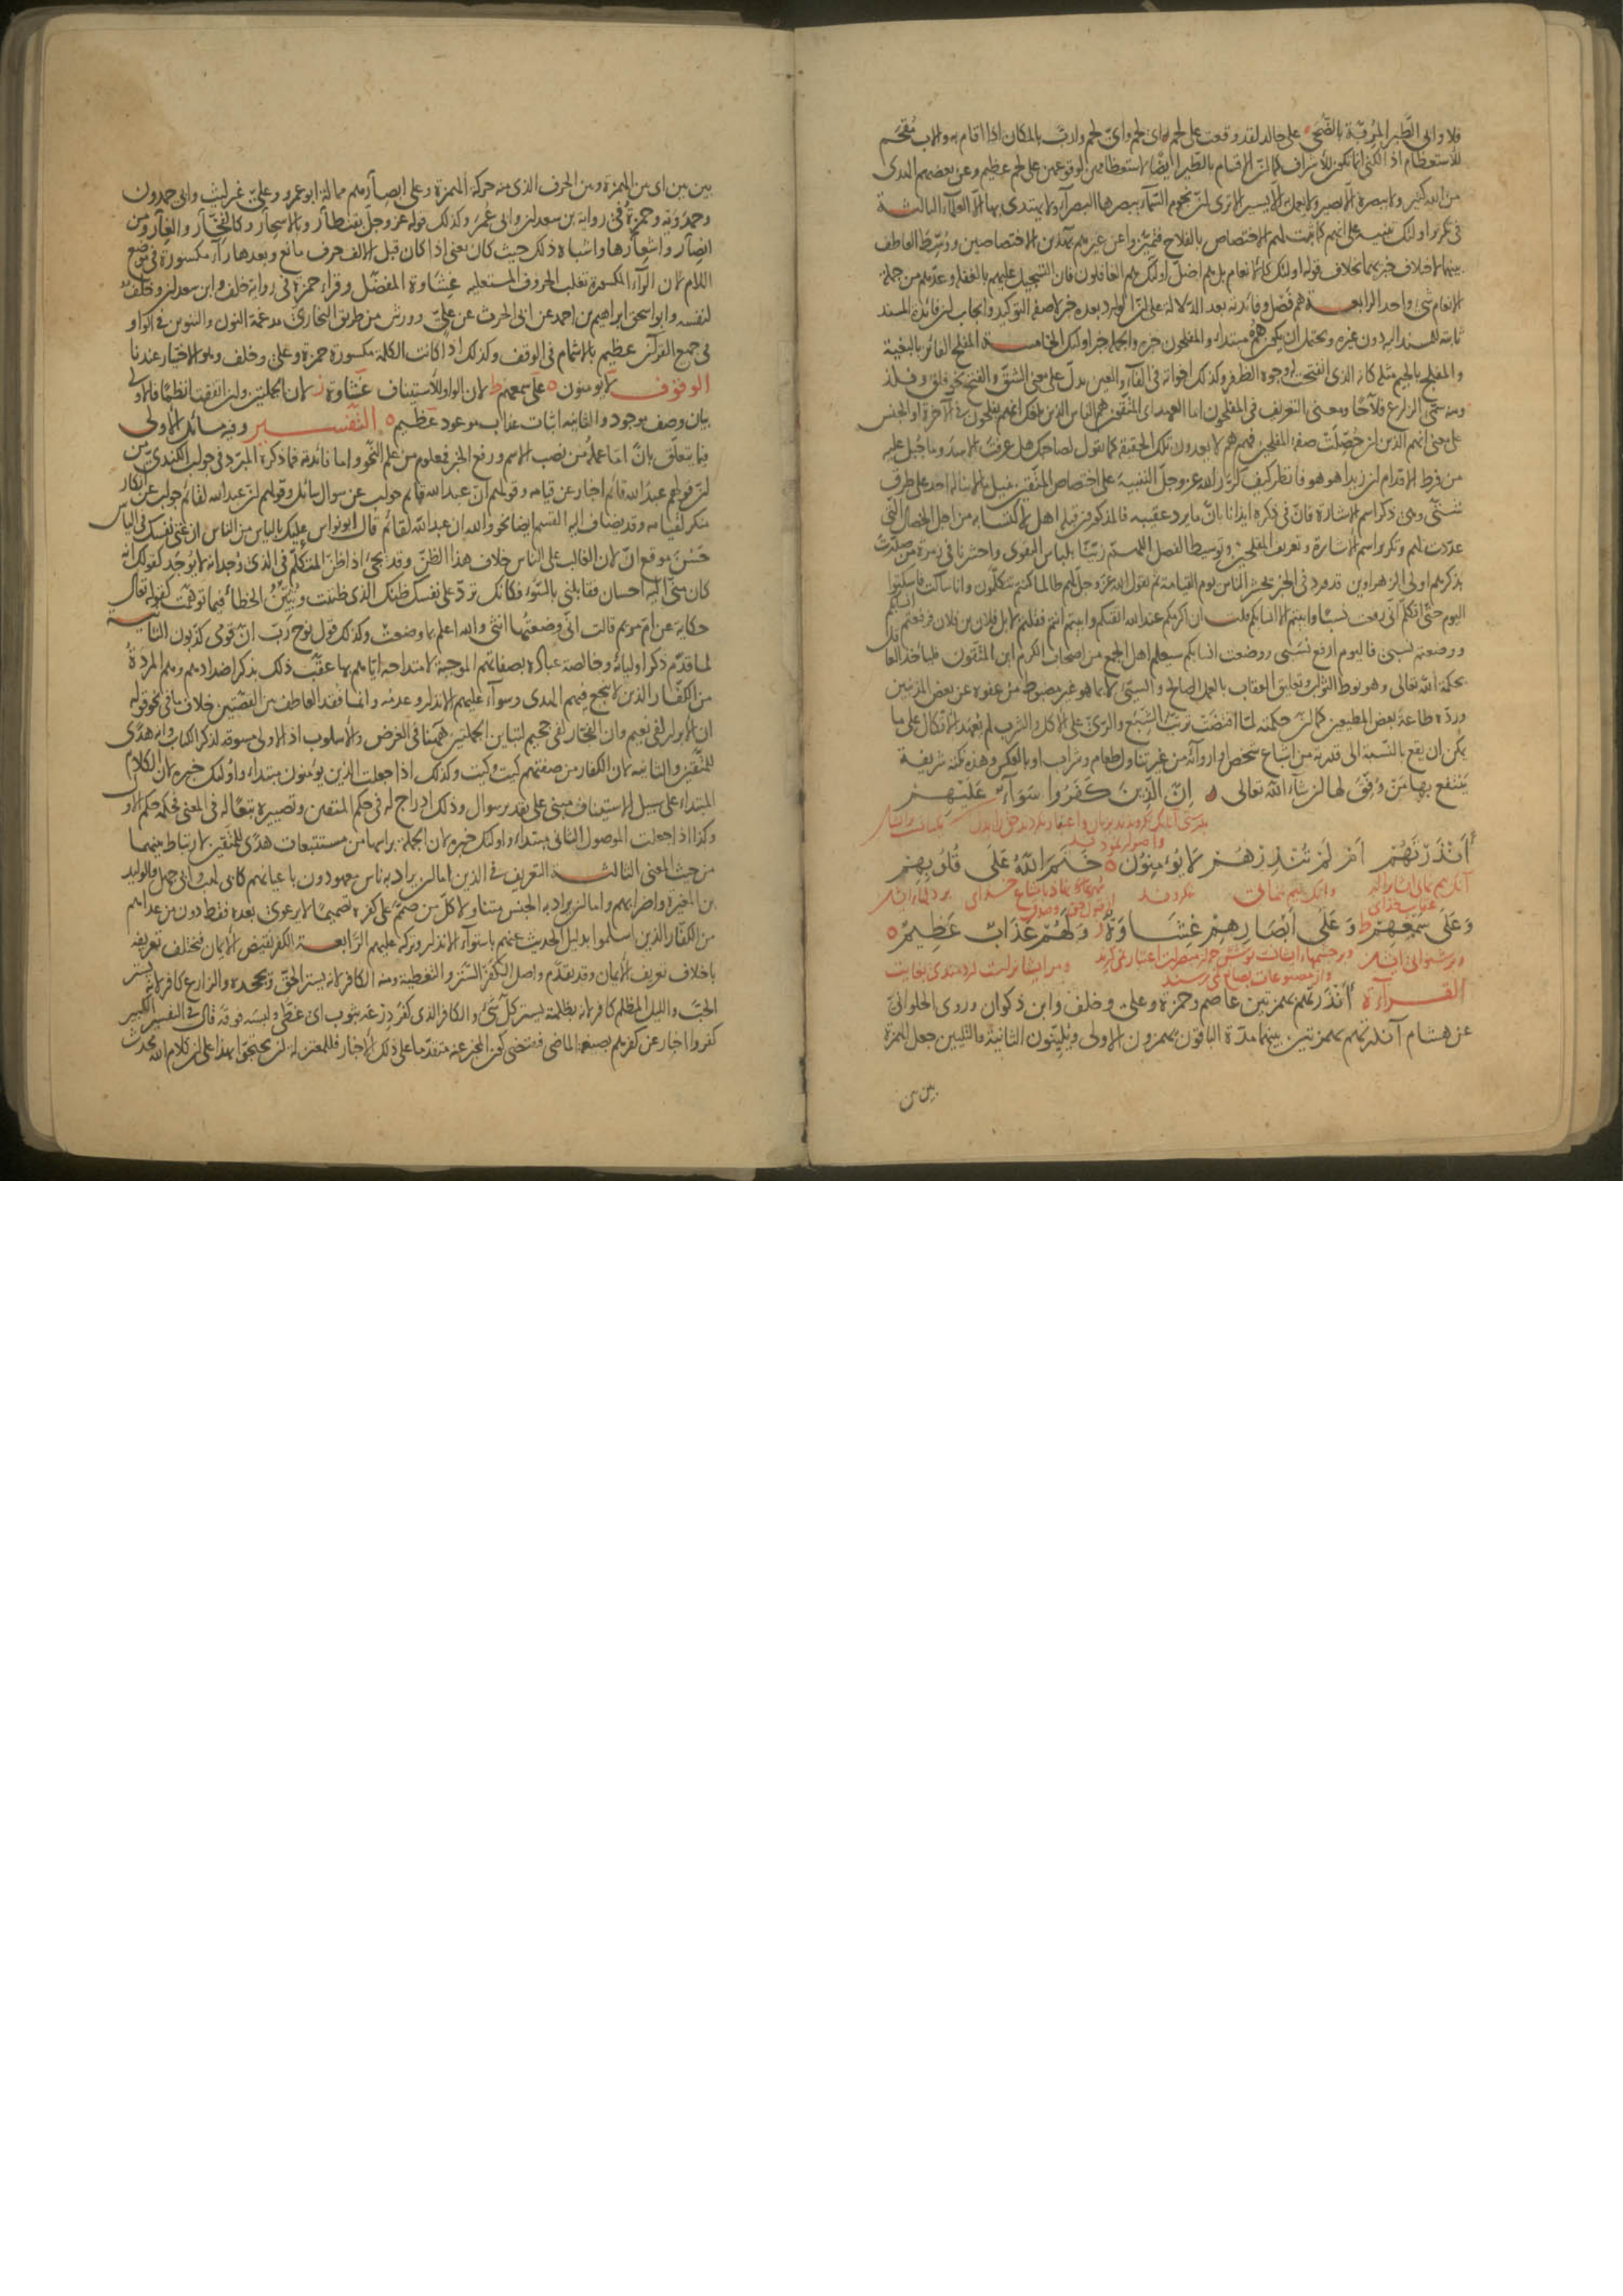 فلا وابى الطير المربة بالضحى على خالد لقد وقعت على لحم اى لحم واى لحم وارب بالمكان اذا اقام به والاب مقحم
للاستعظام اذ الكنى انما تكون للأشراف كما ان الاقسام بالطير ايضا لاستعظامهن لوقوعهن على لحم عظيم وعن بعضهم الهدى
من الله كثير ولا يبصره الا بصير ولا يعمل به الا يسير الا ترى ان نجوم السماء يبصرها البصراء ولا يهتدى بها الا العلماء الثالثة
فى تكرير اولئك تنبيه على انهم كما ثبت لهم الاختصاص بالفلاح فتميزوا عن غيرهم بهذين الاختصاصين ووسط العاطف
بينهما لاختلاف خبريهما بخلاف قوله اولئك كالانعام بل هم اضل اولئك هم الغافلون فان التسجيل عليهم بالغفلة وعدهم من جملة
الانعام شىء واحد الرابعة هم فصل وفائدته بعد الدلالة على ان الوارد بعده خبر لا صفة التوكيد وايجاب ان فائدة المسند
ثابتة للمسند اليه دون غيره ويحتمل ان يكون هم مبتدأ والمفلحون خبره والجملة خبر اولئك الخامسة المفلح الفائز بالبغية
والمفلج بالجيم مثله كانه الذى انفتحت له وجوه الظفر وكذلك اخواته فى الفاء والعين يدل على معنى الشق والفتح نحو فلق وفلذ
ومنه سمى الزارع فلاحا ومعنى التعريف فى المفلحون اما العهد اى المتقون هم الناس الذين بلغك انهم يفلحون فى الآخرة او الجنس
على معنى انهم الذين ان حصلت صفة المفلحين فهم هم لا يعدون تلك الحقيقة كما تقول لصاحبك هل عرفت الاسد وما جبل عليه
من فرط الاقدام ان زيدا هو هو فانظر كيف كرر الله عز وجل التنبيه على اختصاص المتقين بنيل ما لا يناله احد على طرق
شتى وهى ذكر اسم الاشارة فان فى ذكره ايذانا بان ما يرد عقيبه فالمذكورون قبله اهل لاكتسابه من اجل الخصال التى
عددت لهم وتكرير اسم الاشارة وتعريف المفلحين وتوسيط الفصل اللهم زينا بلباس التقوى واحشرنا فى زمرة من صدرت
بذكرهم اولى الزهراوين قد ورد فى الخبر يحشر الناس يوم القيامة ثم يقول الله عز وجل لهم طالما كنتم تتكلمون وانا ساكت فاسكتوا
اليوم حتى اتكلم انى رفعت نسبا وابيتم الا انسابكم قلت ان اكرمكم عند الله اتقاكم وابيتم انتم فقلتم لا بل فلان بن فلان فرفعتم انسابكم
ووضعتم نسبى فاليوم ارفع نسبى وأضع انسابكم سيعلم اهل الجمع من اصحاب الكرم اين المتقون
بحكمة الله تعالى وهو نوط الثواب وتعليق العقاب بالعمل الصالح والسيئ
ورده طاعة بعض المطيعين كما ان حكمته لما اقتضت ترتب الشبع والرى على الاكل والشرب لم يعهد الاتكال على ما
يمكن ان يقع بالنسبة الى قدرته من اشباع شخص او اروائه من غير تناول طعام وشراب او بالعكس وهذه نكتة شريفة
ينتفع بها من وفق لها ان شاء الله تعالى ه ان الذين كفروا سواء عليهم
أأنذرتهم ام لم تنذرهم لا يؤمنون ه ختم الله على قلوبهم
وعلى سمعهم ط وعلى أبصارهم غشاوة ز ولهم عذاب عظيم ه
القراءة أأنذرتهم بهمزتين عاصم وحمزة وعلى وخلف وابن ذكوان وروى الحلوانى
عن هشام آنذرتهم بهمزتين بينهما مدة الباقون بهمزون الاولى ويلينون الثانية والتليين جعل الهمزة
بين بين
بين بين اى بين الهمزة وبين الحرف الذى منه حركة الهمزة وعلى ابصارهم ممالة ابو عمرو وعلى غير ليث وابى حمدون
وحمدويه وحمزة فى رواية ابن سعدان وابى عمر وكذلك قوله عز وجل بقنطار وبالاسحار وكالفخار والغار ومن
انصار واشعارها واشباه ذلك حيث كان يعنى اذا كان قبل الالف حرف مانع وبعدها راء مكسورة فى موضع
اللام لان الراء المكسورة تغلب الحروف المستعلية غشاوة المفضل وقرأ حمزة فى رواية خلف وابن سعدان وخلف
لنفسه وابو اسحق ابراهيم بن احمد عن ابى الحرث عن على وورش من طريق النجارى مدغمة النون والتنوين فى الواو
فى جميع القرآن عظيم بالاشمام فى الوقف وكذلك اذا كانت الكلمة مكسورة حمزة وعلى وخلف وهو الاختيار عندنا
الوقوف لا يؤمنون ه على سمعهم ط لان الواو للاستيناف غشاوة ز لان الجملتين وان اتفقتا نظما فالاولى
بيان وصف موجود والثانية اثبات عذاب موعود عظيم ه التفسير وفيه مسائل الاولى
فيما يتعلق بان اما عمله من نصب الاسم ورفع الخبر فمعلوم من علم النحو واما فائدته فما ذكره المبرد فى جواب الكندى من
ان قولهم عبد الله قائم اخبار عن قيامه وقولهم ان عبد الله قائم جواب عن سؤال سائل وقولهم ان عبد الله لقائم جواب عن انكار
منكر لقيامه وقد يضاف اليه القسم ايضا نحو والله ان عبد الله لقائم قال ابو نواس عليك بالياس من الناس ان غنى نفسك فى الياس
حسن موقع ان لان الغالب على الناس خلاف هذا الظن وقد يجئ اذا ظن المتكلم فى الذى وجد انه لا يوجد كقولك انه
كان منى اليه احسان فقابلنى بالسوء فكانك ترد على نفسك ظنك الذى ظننت وتبين الخطأ فيما توهمت كقوله تعالى
حكاية عن ام مريم قالت انى وضعتها انثى والله اعلم بما وضعت وكذلك قول نوح رب ان قومى كذبون الثانية
لما قدم ذكر اوليائه وخالصة عباده بصفاتهم الموجبة لامتداحه اياهم بها عقب ذلك بذكر اضدادهم وهم المردة
من الكفار الذين لا ينجع فيهم الهدى وسواء عليهم الانذار وعدمه وانما فقد العاطف بين القصتين خلاف ما فى نحو قوله
ان الأبرار لفى نعيم وان الفجار لفى جحيم لتباين الجملتين ههنا فى الغرض والأسلوب اذ الاولى مسوقة لذكر الكتاب وانه هدى
للمتقين والثانية لان الكفار من صفتهم كيت وكيت وكذلك اذا جعلت الذين يؤمنون مبتدأ واولئك خبره لان الكلام
المبتدأ على سبيل الاستيناف مبنى على تقدير سؤال وذلك ادراج له فى حكم المتقين وتصييره تبعا له فى المعنى فحكمه حكم الاول
وكذا اذا جعلت الموصول الثانى مبتدأ واولئك خبره لان الجملة براسها من مستتبعات هدى للمتقين لارتباط بينهما
من حيث المعنى الثالثة التعريف فى الذين اما ان يراد به ناس معهودون باعيانهم كابى لهب وابى جهل والوليد
بن المغيرة واضرابهم واما ان يراد به الجنس متناولا كل من صمم على كفره تصميما لا يرعوى بعده فقط دون من عداهم
من الكفار الذين اسلموا بدليل الحديث عنهم باستواء الانذار وتركه عليهم الرابعة الكفر نقيض الايمان فيختلف تعريفه
باختلاف تعريف الايمان وقد تقدم واصل الكفر الستر والتغطية ومنه الكافر لانه يستر الحق ويجحده والزارع كافر لانه يستر
الحب والليل المظلم كافر لانه بظلمته يستر كل شىء والكافر الذى كفر درعه بثوب اى غطى ولبسه فوقه قال فى التفسير الكبير
كفروا اخبار عن كفرهم بصيغة الماضى فيقتضى كون المخبر عنه متقدما على ذلك الاخبار فللمعتزلة ان يحتجوا بهذا على ان كلام الله محدث